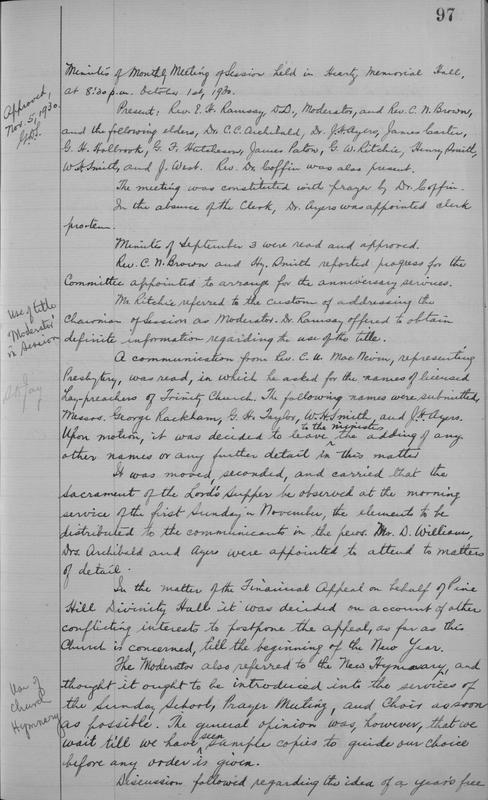 97
Minutes of Monthly Meeting of Session held in Heartz Memorial Hall,
at 8:30 p.m. October 1st, 1930.
Approved,
Nov. 5, 1930.
Present: Rev. E. H. Ramsay, D.D., Moderator, and Rev. C. N. Brown,
and the following elders, Dr. C. C. Archibald, Dr. J. H. Ayers, James Carter,
G. H. Holbrook, G. F. Hutcheson, James Paton, G. W. Ritchie, Henry Smith,
W. H. Smith, and J. West. Rev. Dr. Coffin was also present.
The meeting was constituted with prayer by Dr. Coffin.
In the absence of the Clerk, Dr. Ayers was appointed clerk
pro-tem.
Minutes of September 3 were read and approved.
Rev. C. N. Brown and Hy. Smith reported progress for the
Committee appointed to arrange for the anniversary services.
Use of title
"Moderator"
in Session
Mr. Ritchie referred to the custom of addressing the
Chairman of Session as Moderator. Dr. Ramsay offered to obtain
definite information regarding the use of the title.
A communication from Rev. C. W. MacNevin, representing
Presbytery, was read, in which he asked for the names of licensed
Lay-preachers of Trinity Church. The following names were submitted,
Messrs. George Rackham, G. H. Taylor, W. H. Smith, and J. H. Ayers.
Upon motion, it was decided to leave to the minister the adding of any
other names or any further detail in this matter
It was moved, seconded, and carried that the
sacrament of the Lord's Supper be observed at the morning
service of the first Sunday in November, the elements to be
distributed to the communicants in the pews. Mr. D. Williams,
Drs. Archibald and Ayers were appointed to attend to matters
of detail.
In the matter of the Financial Appeal on behalf of Pine
Hill Divinity Hall it was decided on account of other
conflicting interests to postpone the appeal, as far as this
Church is concerned, till the beginning of the New Year.
Use of
Church
Hymnary
The Moderator also referred to the New Hymnary, and
thought it ought to be introduced into the services of
the Sunday School, Prayer Meeting, and Choir as soon
as possible. The general opinion was, however, that we
wait till we have seen sample copies to guide our choice
before any order is given.
Discussion followed regarding the idea of a year's free